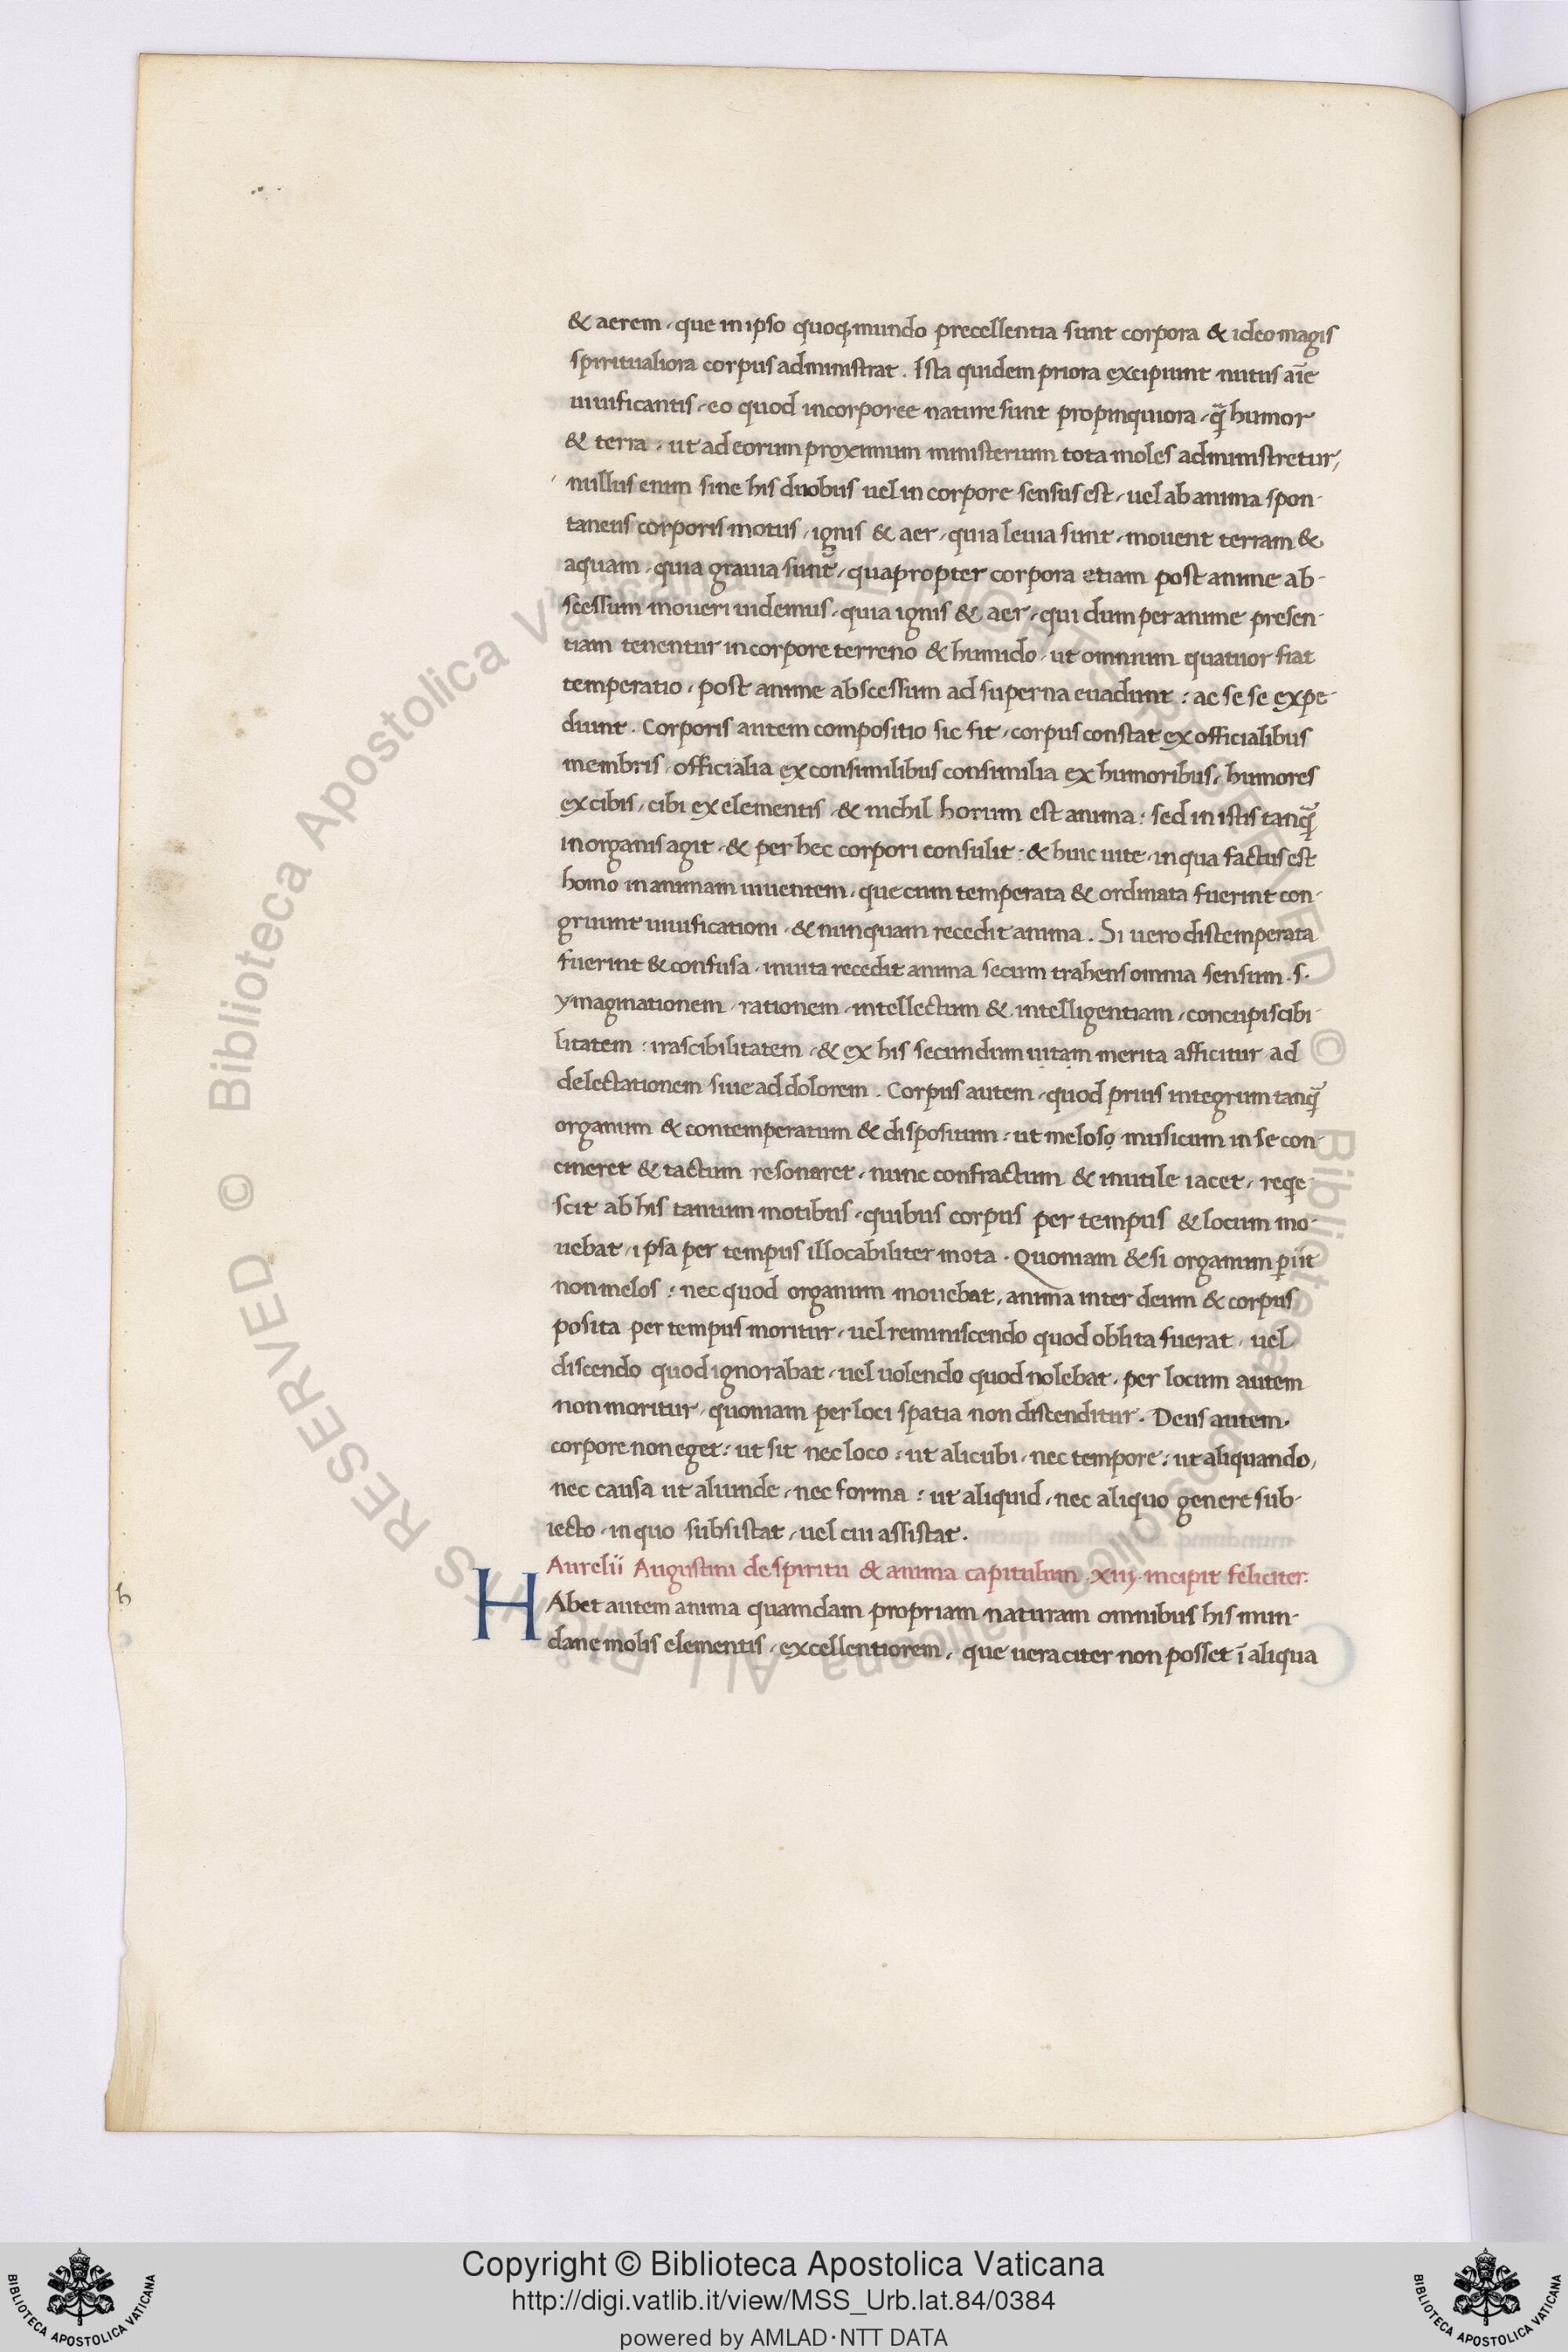 & aerem, que in ipso quoq; mundo precellentia sunt corpora & ideo magis
spiritualiora corpus administrat. Ista quidem priora excipiunt nutus aīe
uiuificantis, eo quod incorporee nature sunt propinquiora, q̃ humor
& terra, ut ad eorum proximum ministerium tota moles administretur,
nullus enim sine his duobus uel in corpore sensus est, uel ab anima spon-
taneus corporis motus, ignis & aer, quia leuia sunt, mouent terram &
aquam, quia grauia sunt, quapropter corpora etiam post anime ab-
scessum moueri uidemus, quia ignis & aer, qui dum per anime presen-
tiam tenentur in corpore terreno & humido, ut omnium quatuor fiat
temperatio, post anime abscessum ad superna euadunt: ac se se expe-
diunt. Corporis autem compositio sic fit, corpus constat ex officialibus
membris, officialia ex consimilibus consimilia ex humoribus, humores
ex cibis, cibi ex elementis, & nichil horum est anima: sed in istis tanq̃
in organis agit, & per hec corpori consulit: & huic uite, in qua factus est
homo in animam uiuentem, que cum temperata & ordinata fuerint con-
gruunt uiuificationi, & nunquam recedit anima. Si uero distemperata
fuerint & confusa, inuita recedit anima secum trahens omnia sensum .s.
ymaginationem, rationem, intellectum & intelligentiam, concupiscibi-
litatem: irascibilitatem, & ex his secundum uitam merita afficitur ad
delectationem siue ad dolorem. Corpus autem, quod prius integrum tanq̃
organum & contemperatum & dispositum: ut meloso musicum in se con-
cineret & tactum resonaret, nunc confractum & inutile iacet, reqe-
scit ab his tantum motibus, quibus corpus per tempus & locum mo-
uebat, ipsa per tempus illocabiliter mota. Quoniam & si organum piit
non melos: nec quod organum mouebat, anima inter deum & corpus
posita per tempus moritur, uel reminiscendo quod oblita fuerat, uel
discendo quod ignorabat, uel uolendo quod nolebat, per locum autem
non moritur, quoniam per loci spatia non distenditur. Deus autem,
corpore non eget: ut sit nec loco: ut alicubi, nec tempore: ut aliquando,
nec causa ut aliunde, nec forma: ut aliquid, nec aliquo genere sub-
iecto, in quo subsistat, uel cui assistat.
Aurelii Augustini de spiritu & anima capitulum .xiij. incipit feliciter:
HAbet autem anima quamdam propriam naturam omnibus his mun-
dane molis elementis, excellentiorem, que ueraciter non posset ī aliqua
b
© Biblioteca Apostolica Vaticana ALL RIGHTS RESERVED © Biblioteca Apostolica Vaticana ALL RIGHTS RESERVED
Copyright © Biblioteca Apostolica Vaticana
http://digi.vatlib.it/view/MSS_Urb.lat.84/0384
powered by AMLAD·NTT DATA
BIBLIOTECA APOSTOLICA VATICANA
BIBLIOTECA APOSTOLICA VATICANA